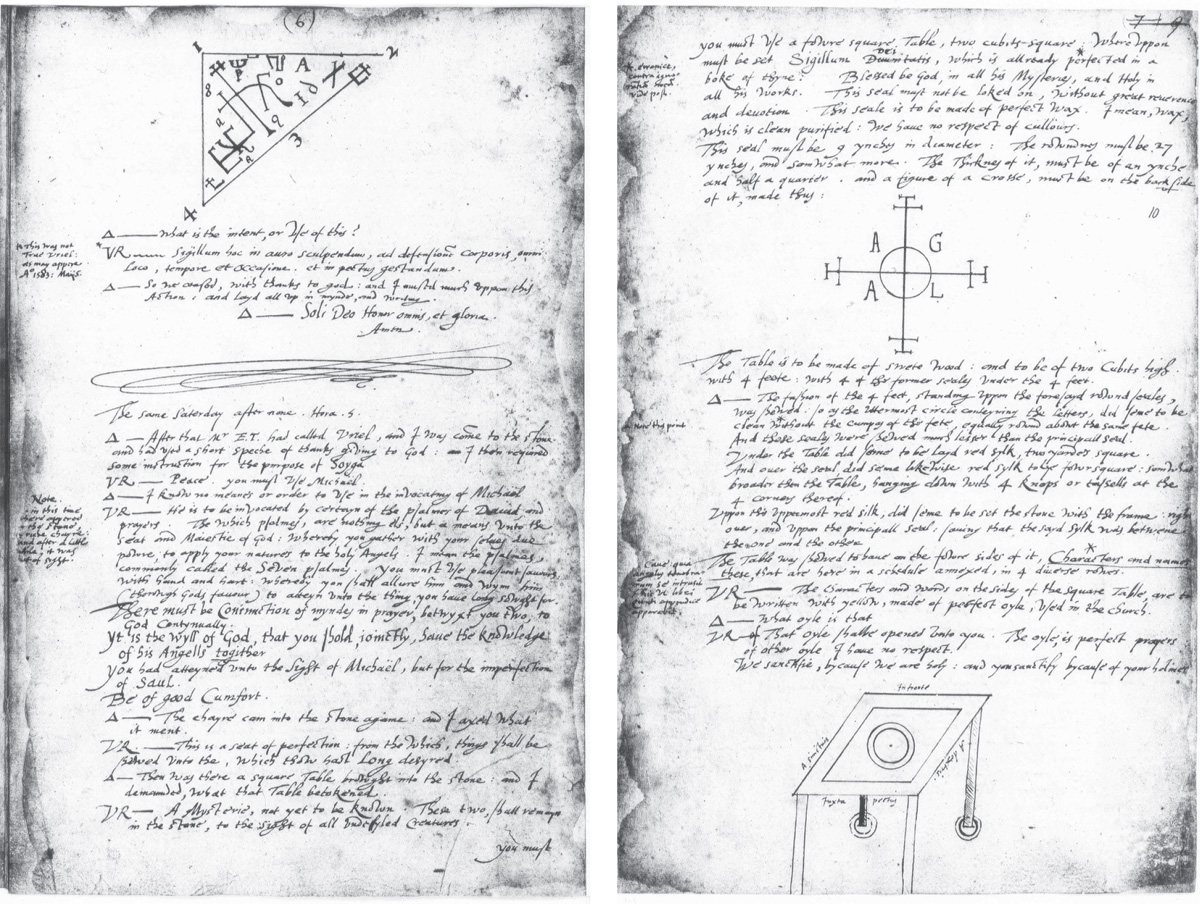 (6)
1 2
A
8
3
4
Δ — What is the intent, or Use of this?
* This was not
True Vriel:
as may appere
Ao 1583: Maij 5.
*VR — Sigillum hoc in auro sculpendum, ad defensionē corporis, omni
Loco, tempore et occasione. et in pectus gestandum.
Δ — So we ceased, with thanks to god: and I mused much uppon this
Action: and Layd all up in mynde, and writing.
Δ — Soli Deo Honor omnis, et gloria.
Amen.
The same Saterday after none. Hora. 5.
Δ — After that Mr E.T. had called Vriel, and I was come to the stone
and had used a short speche of thanks giving to God: I then required
some instruction for the purpose of Soyga
VR — Peace. you must Use Michaël.
Δ — I know no meanes or order to Use in the invocating of Michaël
Note
in this time
there appered
in the stone,
and after a little
while it was
out of sight.
VR — He is to be invocated by certayn of the psalmes of Dauid and
prayers. The which psalmes, are nothing els, but a means Unto the
seat and Maiestie of God: Whereby you gather with your selues due
powre, to apply your natures to the holy Angels. I mean the psalmes
commonly called the Seven psalmes. You must Use pleasant sauours
With hand and hart: Whereby you shall allure him and wynn him
(thorowgh Gods fauour) to atteyn Unto the thing, you haue long sowght for.
There must be Coniunction of myndes in prayer, betwyxt you two, to
God Contynually.
yt is the wyll of God, that you shold, ioinctly, haue the knowledge
of his Angells together
You had atteyned Unto the Sight of Michaël, but for the imperfection
of Saul.
Be of good Cumfort.
Δ — The chayre cam into the stone againe: and I axed What
it ment.
VR. — This is a seat of perfection: from the which, things shall be
shewed Unto the, Which thow hast Long desyred.
Δ — Then was there a square Table browght into the stone: and I
demaunded, What that Table betokened.
VR — A Mysterie, not yet to be known. These two, shall remayn
in the stone, to the sight of all Undefyled Creatures.
You must
9
you must Use a fowre square Table, two cubits square: Where uppon
must be set Sigillum Diuinitatis, Which is allready perfected in a
Dei
boke of thyne: Blessed be God, in all his Mysteries, and Holy in
all his Works. This seal must not be loked on, without great reuerence
and devotion. This seale is to be made of perfect Wax. I mean, Wax,
Which is clean purified: We haue no respect of cullours.
This seal must be 9 ynches in diameter: The rowndnes must be 27
ynches, and somWhat more. The Thicknes of it, must be of an ynche
and half a quarter. and a figure of a crosse, must be on the back side
of it, made thus:
10
A G
A L
The Table is to be made of swete Wood: and to be of two Cubits high.
with 4 feete: with 4 of the former seales Under the 4 feet.
Δ — The fashion of the 4 feet, standing Uppon the foresayd rownd seales,
Was shewed: so as the Uttermost circle conteyning the letters, did seme to be
clean without the cumpas of the fete, equally rownd abowt the same fete.
* Note this point
And these seales were shewed much lesser than the principall seal.
Under the Table did seme to be layd red sylk, two yardes square.
And over the seal did seme likewise red sylk to lye fowr square: somwhat
broader then the Table, hanging down with 4 knops or tassells at the
4 corners therof.
Uppon the Uppermost red silk, did seme to be set the stone with the frame: right
ouer, and Uppon the principall Seal: sauing that the sayd sylk was betwene
the one and the other.
The Table was shewed to haue on the fowre sides of it, Characters and names
these, that are here in a schedule annexed, in 4 diuerse rowes.
VR — The Characters and words on the sides of the square Table, are to
be written with yellow, made of perfect oyle, Used in the church.
Δ — What oyle is that
VR — That oyle shalbe opened Unto you. The oyle is perfect prayers
of other oyle I haue no respect.
We sanctifie, bycause We are holy: and you sanctify bycause of your holines
fronte
A sinistris
A dextris
Juxta pectus